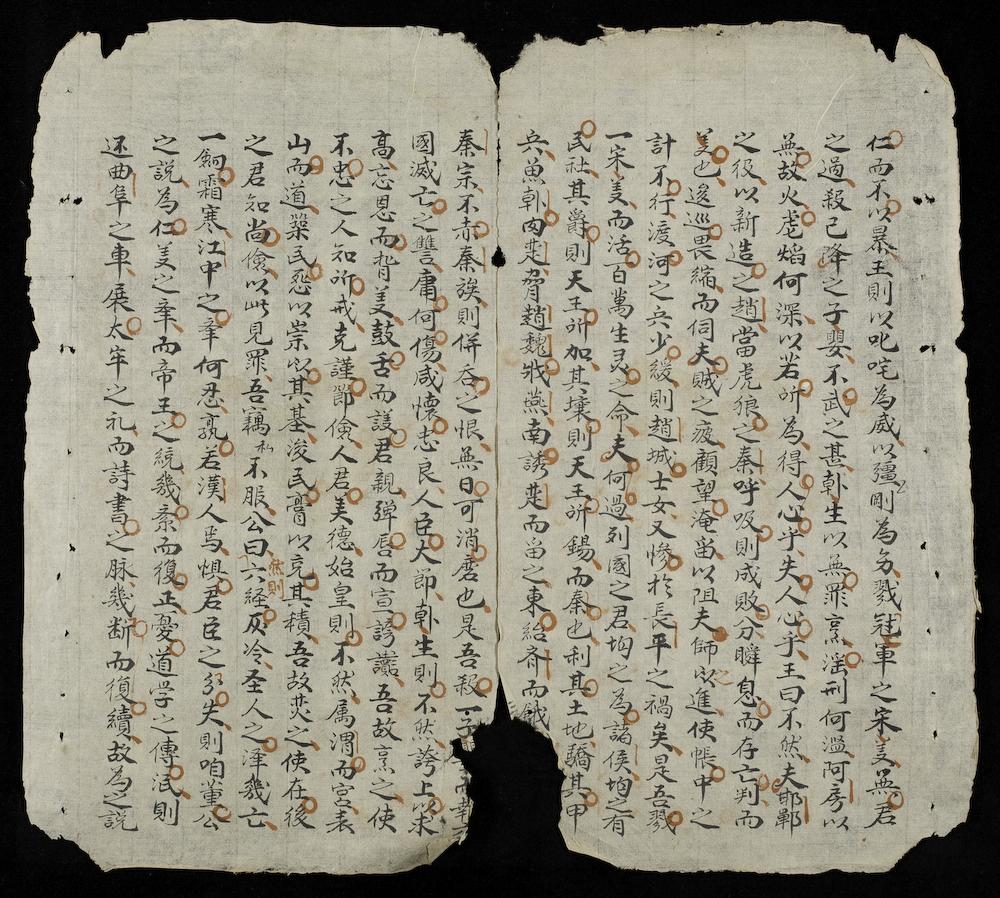 仁而不以暴王則以叱咤為威以彊剛為务戮冠軍之宋義無君
之過殺已降之子嬰不武之甚韓生以無罪烹滛刑何濫阿房以
無故火虐焰何深以若所為得人心乎失人心乎王曰不然夫邯鄲
之役以新造之趙當虎狼之秦呼吸則成敗分瞬息而存亡判而
義也逡巡畏縮而伺夫賊之疲顧望淹留以阻夫師之進使帳中之
計不行渡河之兵少緩則趙城士女又慘於長平之禍矣是吾戮
一宋義而活百萬生灵之命夫何過列國之君均之為諸侯均之有
民社其爵則天王所加其壤則天王所錫而秦也利其土地驕其甲
兵魚韓肉楚脅趙魏戕燕南誘楚而留之東紿齊而餓
秦宗不赤秦族則併吞之恨無日可消磨也是吾殺一子
國滅亡之讐庸何傷咸懷忠良人臣大節韓生則不然誇上以求
高忘恩而背義鼓舌而議君親弹唇而宣謗讟吾故烹之使
不忠之人知所戒克謹節儉人君美德始皇則不然属渭而宮表
山而道築民怨以崇其基浚民膏以充其積吾故焚之使在後
之君知尚儉以此見罪吾竊私不服公曰然則六経灰冷圣人之澤幾亡
一舸霜寒江中之事何忍孰若漢人焉惧君臣之分失則咱董公
之說為仁義之牽而帝王之統幾紊而復正憂道学之傳泯則
还曲阜之車展太牢之礼而詩書之脉幾断而復續故為之說